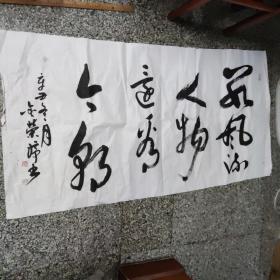 数风流
人物
还看
今朝
辛丑冬月
金荣华书